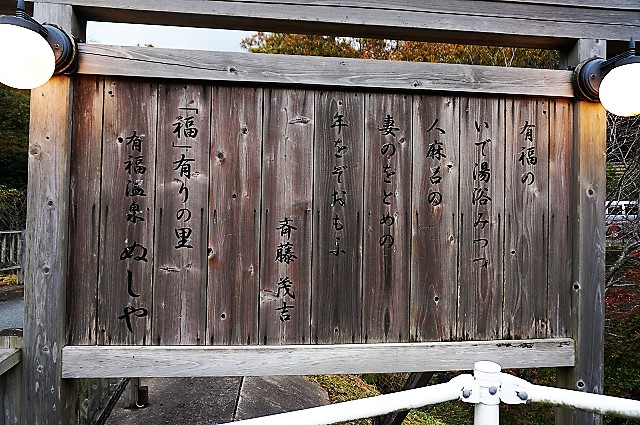 有福の
いで湯浴みつゝ
人麻呂の
妻のをとめの
年をぞおもふ
斉藤茂吉
「福」有りの里
有福温泉 ぬしや